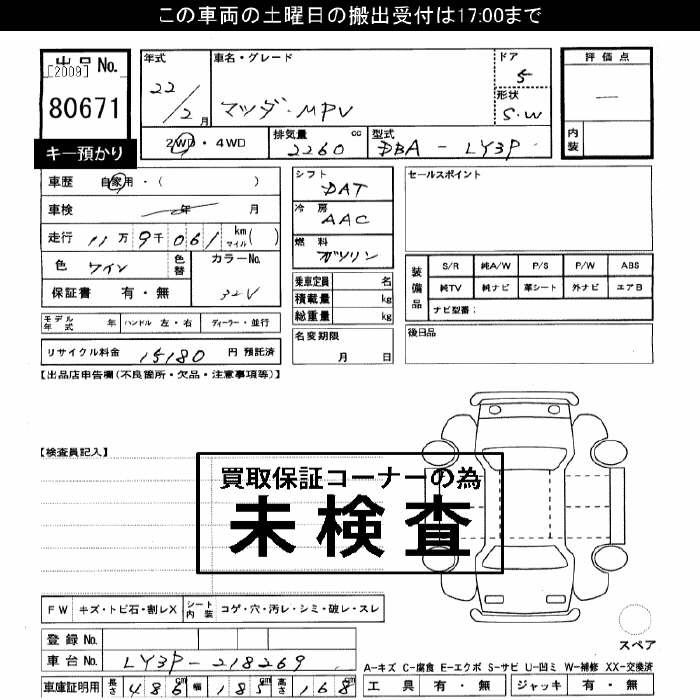 この車両の土曜日の搬出受付は17:00まで
出品No.
[2009]
80671
キー預かり
年式
22/2月
車名・グレード
マツダ・MPV
ドア
5
形状
S.W
評価点
―
内装
2WD・4WD
排気量 cc
2260
型式
DBA-LY3P
車歴 自家用・( )
車検 年 月
走行 11万9千061 km マイル ( )
色 ワイン
色替
カラーNo.
32V
保証書 有・無
モデル年式 年 ハンドル 左・右 ディーラー・並行
リサイクル料金 15180 円 預託済
シフト
DAT
冷房
AAC
燃料
ガソリン
乗車定員 名
積載量 kg
総重量 kg
名変期限
月 日
セールスポイント
装備品
S/R 純A/W P/S P/W ABS
純TV 純ナビ 革シート 外ナビ エアB
ナビ型番:
後日品
【出品店申告欄(不良箇所・欠品・注意事項等)】
【検査員記入】
買取保証コーナーの為
未検査
FW キズ・トビ石・割レX シート内装 コゲ・穴・汚レ・シミ・破レ・スレ
登録No.
車台No. LY3P-218269
車庫証明用 長さ 486cm 幅 185cm 高さ 168cm
スペア
A-キズ C-腐食 E-エクボ S-サビ U-凹ミ W-補修 XX-交換済
工具 有・無 ジャッキ 有・無